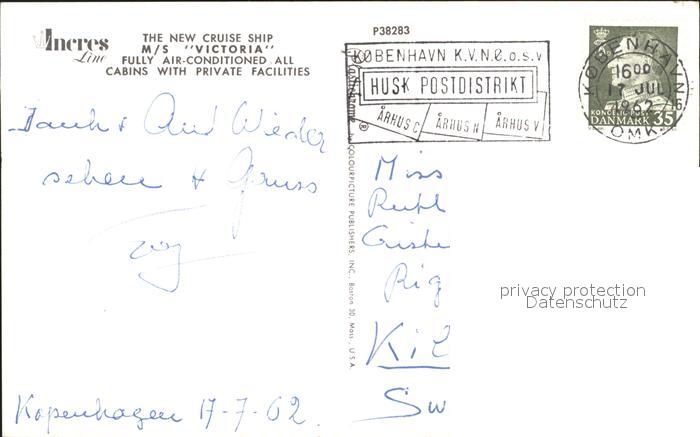 Incres
Line
THE NEW CRUISE SHIP
M/S "VICTORIA"
FULLY AIR-CONDITIONED ALL
CABINS WITH PRIVATE FACILITIES
P38283
KØBENHAVN K.V.N.Ø.o.s.v
HUSK POSTDISTRIKT
ÅRHUS C
ÅRHUS N
ÅRHUS V
KØBENHAVN
1600
17 JUL
1962
OMK.
DANMARK 35
Dank & Auf Wieder
sehen & Gruss
Kopenhagen 17-7-62.
COLOURPICTURE PUBLISHERS, INC., Boston 30, Mass., U.S.A.
Miss
Ruth
Kil
Sw
privacy protection
Datenschutz